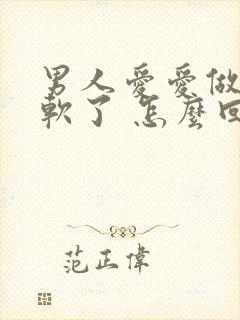 男人愛愛做
軟了 怎麼回
范正偉